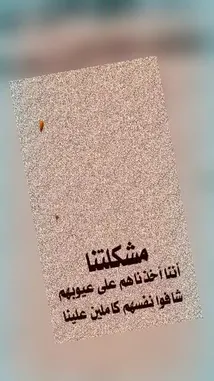 مشكلتنا
أننا اخذناهم على عيوبهم
شافوا نفسهم كاملين علينا